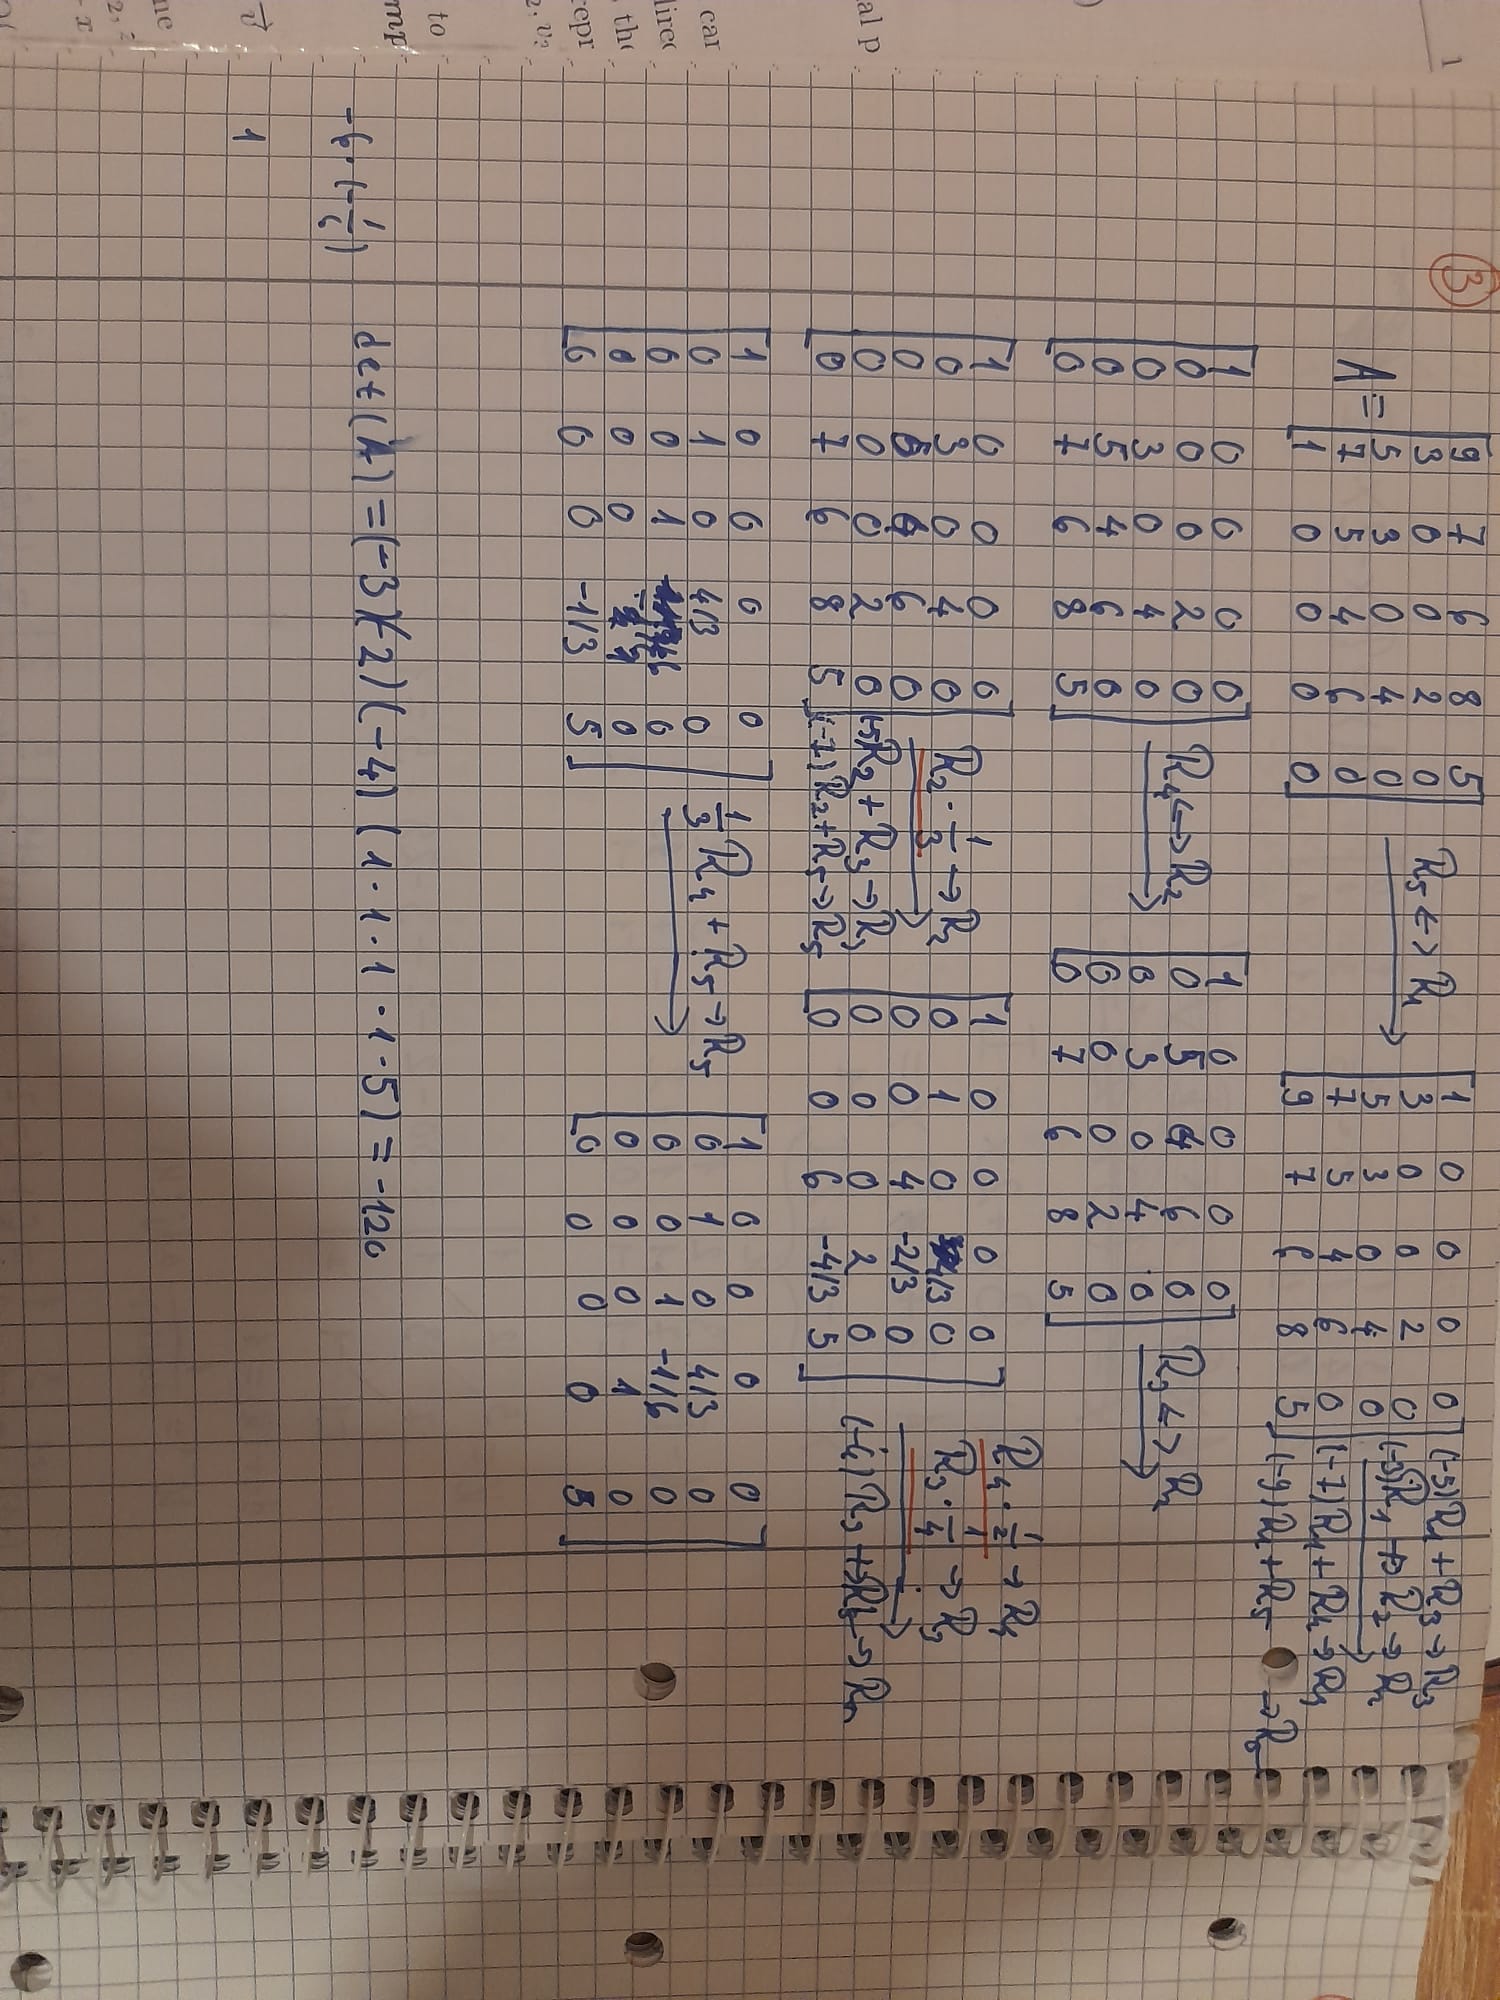 1
③
A = [9 7 6 8 5; 3 0 0 2 0; 5 3 0 4 0; 7 5 4 6 0; 1 0 0 0 0] R₅ <-> R₁ → [1 0 0 0 0; 3 0 0 2 0; 5 3 0 4 0; 7 5 4 6 0; 9 7 6 8 5]
(-5)R₁ + R₃ → R₃
(-3)R₁ + R₂ → R₂
(-7)R₁ + R₄ → R₄
(-9)R₁ + R₅ → R₅
[1 0 0 0 0; 0 0 0 2 0; 0 3 0 4 0; 0 5 4 6 0; 0 7 6 8 5] R₄ <-> R₂ → [1 0 0 0 0; 0 5 4 6 0; 0 3 0 4 0; 0 0 0 2 0; 0 7 6 8 5] R₃ <-> R₂ →
[1 0 0 0 0; 0 3 0 4 0; 0 5 4 6 0; 0 0 0 2 0; 0 7 6 8 5]
R₂ · 1/3 → R₂
(-5)R₂ + R₃ → R₃
(-7)R₂ + R₅ → R₅
[1 0 0 0 0; 0 1 0 4/3 0; 0 0 4 -2/3 0; 0 0 0 2 0; 0 0 6 -4/3 5]
R₄ · 1/2 → R₄
R₃ · 1/4 → R₃
[1 0 0 0 0; 0 1 0 4/3 0; 0 0 1 -1/6 0; 0 0 0 1 0; 0 0 0 -1/3 5] 1/3 R₄ + R₅ → R₅ [1 0 0 0 0; 0 1 0 4/3 0; 0 0 1 -1/6 0; 0 0 0 1 0; 0 0 0 0 5]
det(A) = (-3)(-2)(-4)(1·1·1·1·5) = -120
-6·(-1/6)
1
al p
car
the
repr
to
mp
v
ne
x